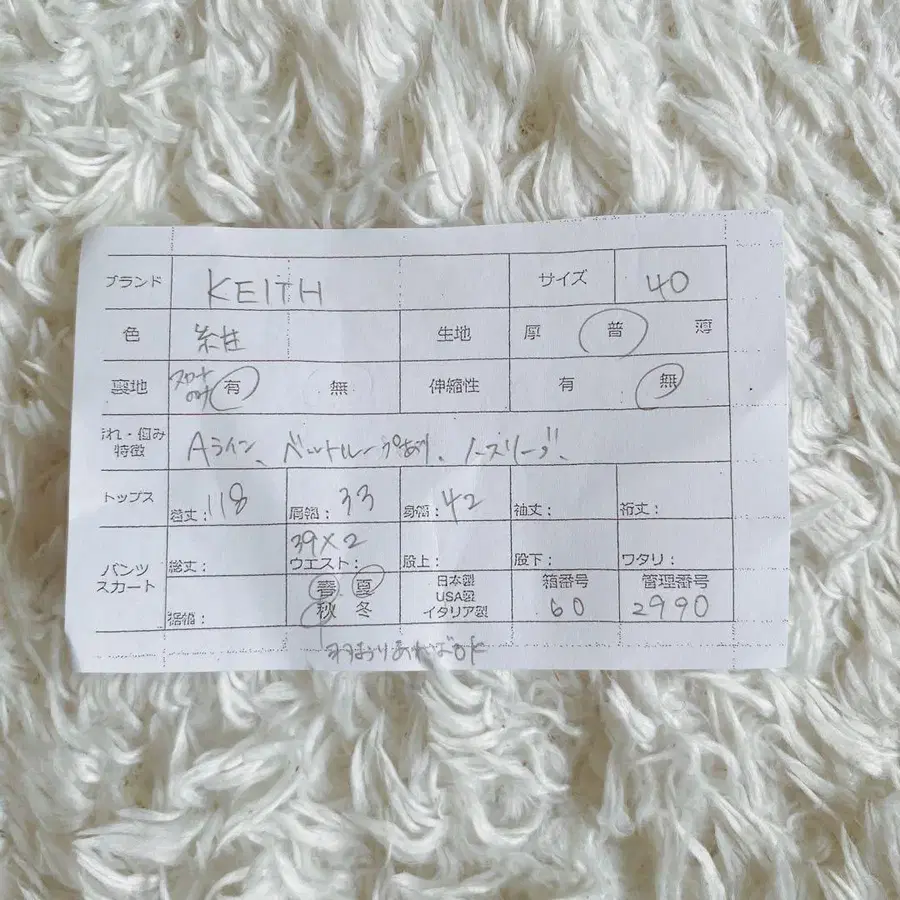 ブランド KEITH サイズ 40
色 生地 厚 普 薄
裏地 スカートのみ 有 無 伸縮性 有 無
汚れ・傷み
特徴 Aライン、ベルトループあり、ノースリーブ、
トップス 着丈:118 肩幅:33 身幅:42 袖丈: 裄丈:
パンツ
スカート 総丈: 39×2 ウエスト: 股上: 股下: ワタリ:
裾幅: 春 夏 秋 冬 日本製 USA製 イタリア製 箱番号 60 管理番号 2990